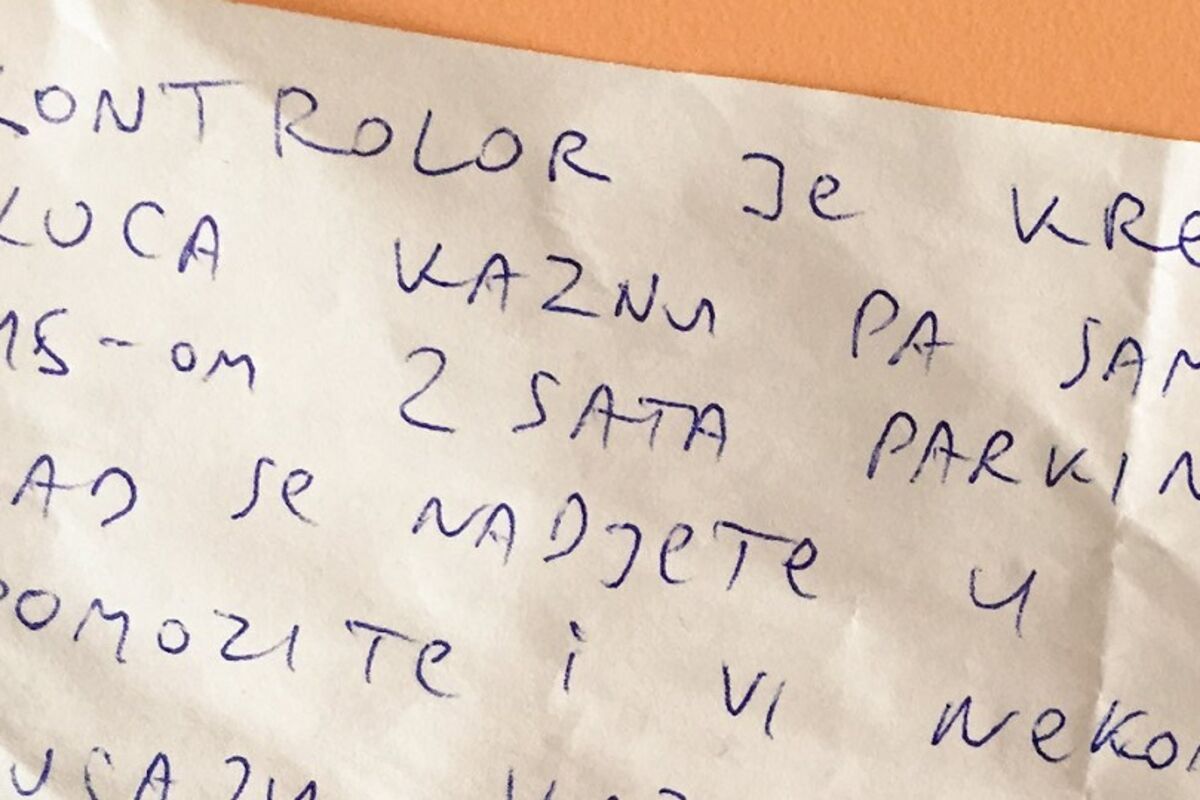 KONTROLOR Je KRe
KUCA KAZNU PA SAM
MS-OM 2 SATA PARKIN
KAD Se NADJeTe U
POMOZITe i VI NeKOM